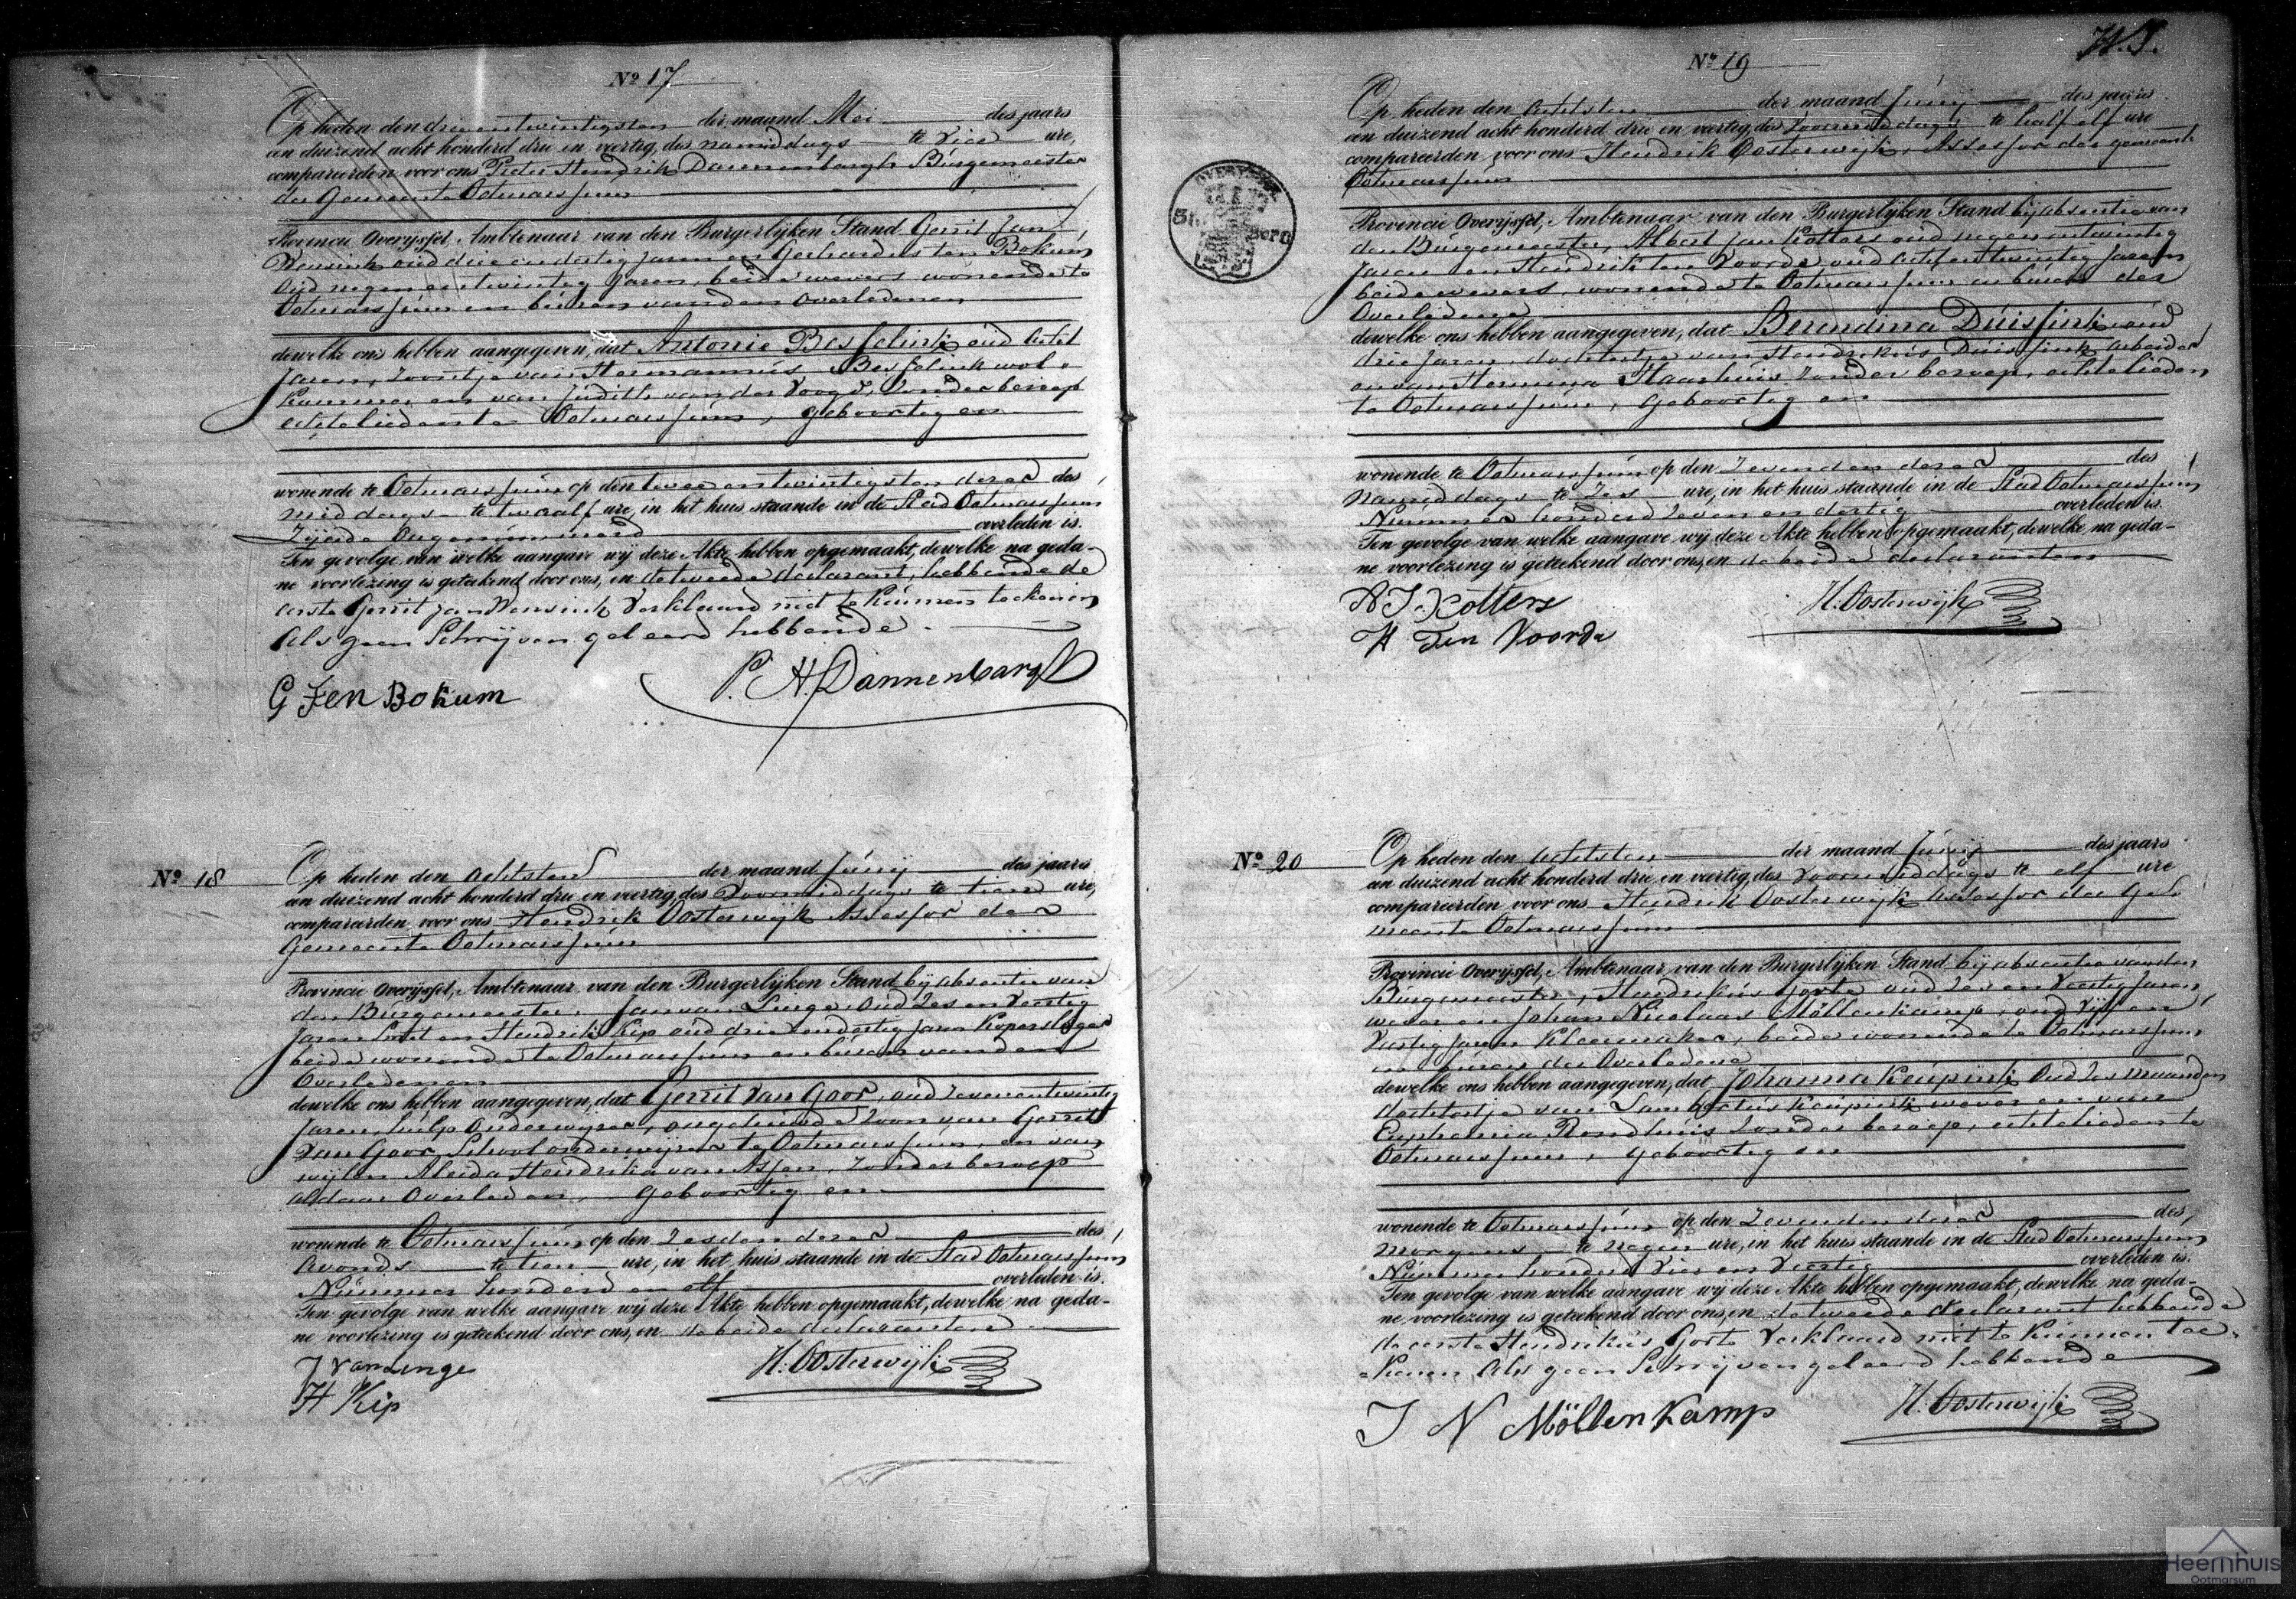 Nº 17
Op heden den drie en twintigsten der maand Mei des jaars
een duizend acht honderd drie en veertig, des namiddags te vier ure,
compareerden voor ons Pieter Hendrik Dannenbargh Burgemeester
der Gemeente Ootmarssum
Provincie Overijssel, Ambtenaar van den Burgerlijken Stand Gerrit Jan
Wensink oud drie en dertig Jaren en Gerhardus ten Bokum
oud negen en twintig Jaren, beide wevers wonende te
Ootmarssum en buren van den Overledenen
dewelke ons hebben aangegeven, dat Antonie Besselink, oud acht
Jaren, Zoontje van Hermannus Besselink wol-
kammer en van Judith van der Voogd, Zonder beroep
echtelieden te Ootmarssum, geboortig en
wonende te Ootmarssum op den twee en twintigsten dezer des
middags te twaalf ure, in het huis staande in de Stad Ootmarssum
Zijnde Ongenummerd overleden is.
Ten gevolge van welke aangave wij deze Akte hebben opgemaakt, dewelke na geda-
ne voorlezing is geteekend door ons, en de tweede declarant, hebbende de
eerste Gerrit Jan Wensink Verklaard niet te Kunnen teekenen
Als geen Schrijven geleerd hebbende.
G Ten Bokum P. H. Dannenbargh
Nº 18
Op heden den achtsten der maand Junij des jaars
een duizend acht honderd drie en veertig, des Voormiddags te tien ure,
compareerden voor ons Hendrik Oosterwijk Assessor der
Gemeente Ootmarssum
Provincie Overijssel, Ambtenaar van den Burgerlijken Stand bij absentie van
den Burgemeester, Jan van Lingen Oud Zes en Veertig
Jaren en Hendrik Kip oud drie en dertig Jaren Koperslager
beide wonende te Ootmarssum en buren van den
Overledenen
dewelke ons hebben aangegeven, dat Gerrit van Goor, oud Zeven en twintig
Jaren, hulp Onderwijzer, ongehuwde Zoon van Gerrit
van Goor, School onderwijzer te Ootmarssum, en van
wijlen Aleida Hendrika van Assen, Zonder beroep
aldaar Overleden, geboortig en
wonende te Ootmarssum op den Zesden dezer des
Avonds te tien ure, in het huis staande in de Stad Ootmarssum
Nummer honderd en elf overleden is.
Ten gevolge van welke aangave wij deze Akte hebben opgemaakt, dewelke na geda-
ne voorlezing is geteekend door ons, en de beide declaranten
J van Linge H. Oosterwijk
H Kip
Nº 19
Op heden den achtsten der maand Junij des jaars
een duizend acht honderd drie en veertig, des Voormiddags te half elf ure
compareerden voor ons Hendrik Oosterwijk, Assessor der gemeente
Ootmarssum
Provincie Overijssel, Ambtenaar van den Burgerlijken Stand bij absentie van
den Burgemeester, Albert Jan Kotters oud negen en twintig
Jaren en Hendrik ten Voorde oud acht en twintig Jaren
beide wevers, wonende te Ootmarssum en buren der
Overledene
dewelke ons hebben aangegeven, dat Berendina Duissink oud
drie Jaren, dochtertje van Hendrikus Duissink arbeider
en van Hermina Haarhuis Zonder beroep, echtelieden
te Ootmarssum, geboortig en
wonende te Ootmarssum op den Zevenden dezer des
Namiddags te Zes ure, in het huis staande in de Stad Ootmarssum
Nummer honderd Zeven en dertig overleden is.
Ten gevolge van welke aangave wij deze Akte hebben opgemaakt, dewelke na geda-
ne voorlezing is geteekend door ons, en de beide declaranten
A J. Kotters H. Oosterwijk
H Ten Voorde
Nº 20
Op heden den achtsten der maand Junij des jaars
een duizend acht honderd drie en veertig, des Voormiddags te elf ure
compareerden voor ons Hendrik Oosterwijk Assessor der Ge-
meente Ootmarssum
Provincie Overijssel, Ambtenaar van den Burgerlijken Stand bij absentie van den
Burgemeester, Hendrikus Gorte oud Zes en Veertig Jaren
wever en Johan Nicolaas Möllenkamp, oud Vijf en
Veertig Jaren Kleermaker, beide wonende te Ootmarssum
en buren der Overledene
dewelke ons hebben aangegeven, dat Johanna Keupink Oud Zes maanden
dochtertje van Lambertus Keupink wever en van
Euphemia Rondhuis Zonder beroep, echtelieden te
Ootmarssum, geboortig en
wonende te Ootmarssum op den Zevenden dezer des
morgens te negen ure, in het huis staande in de Stad Ootmarssum
Nummer honderd Vier en Veertig overleden is.
Ten gevolge van welke aangave wij deze Akte hebben opgemaakt, dewelke na geda-
ne voorlezing is geteekend door ons, en de tweede declarant hebbende
de eerste Hendrikus Gorte Verklaard niet te Kunnen tee-
kenen Als geen Schrijven geleerd hebbende
J N Möllenkamp H. Oosterwijk
Heemhuis
Ootmarsum